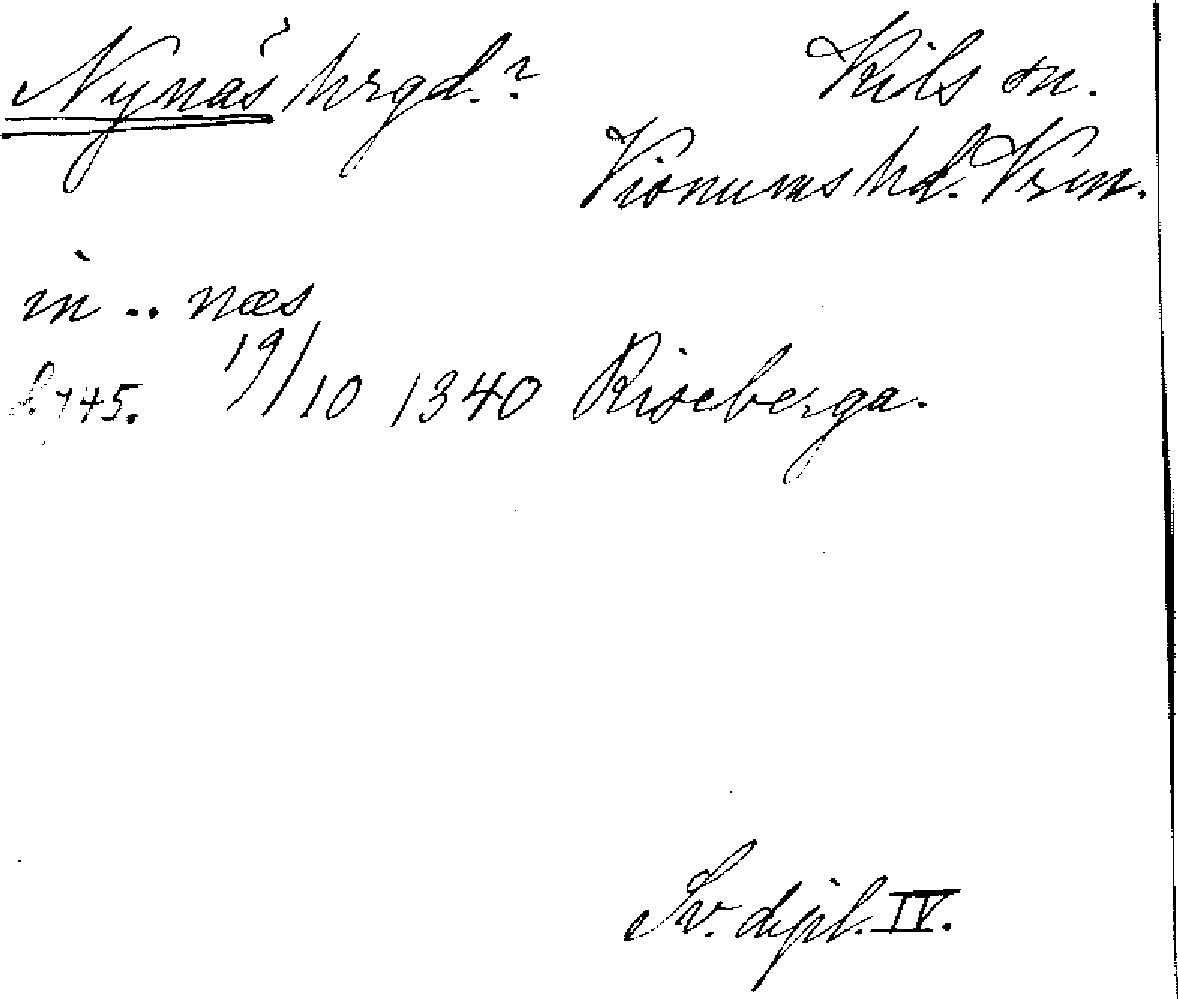 Nynäs hrgd.?
Kils sn.
Visnums hd. Vrm.
in .. næs
s. 745. 19/10 1340 Riseberga.
Sv. dipl. IV.